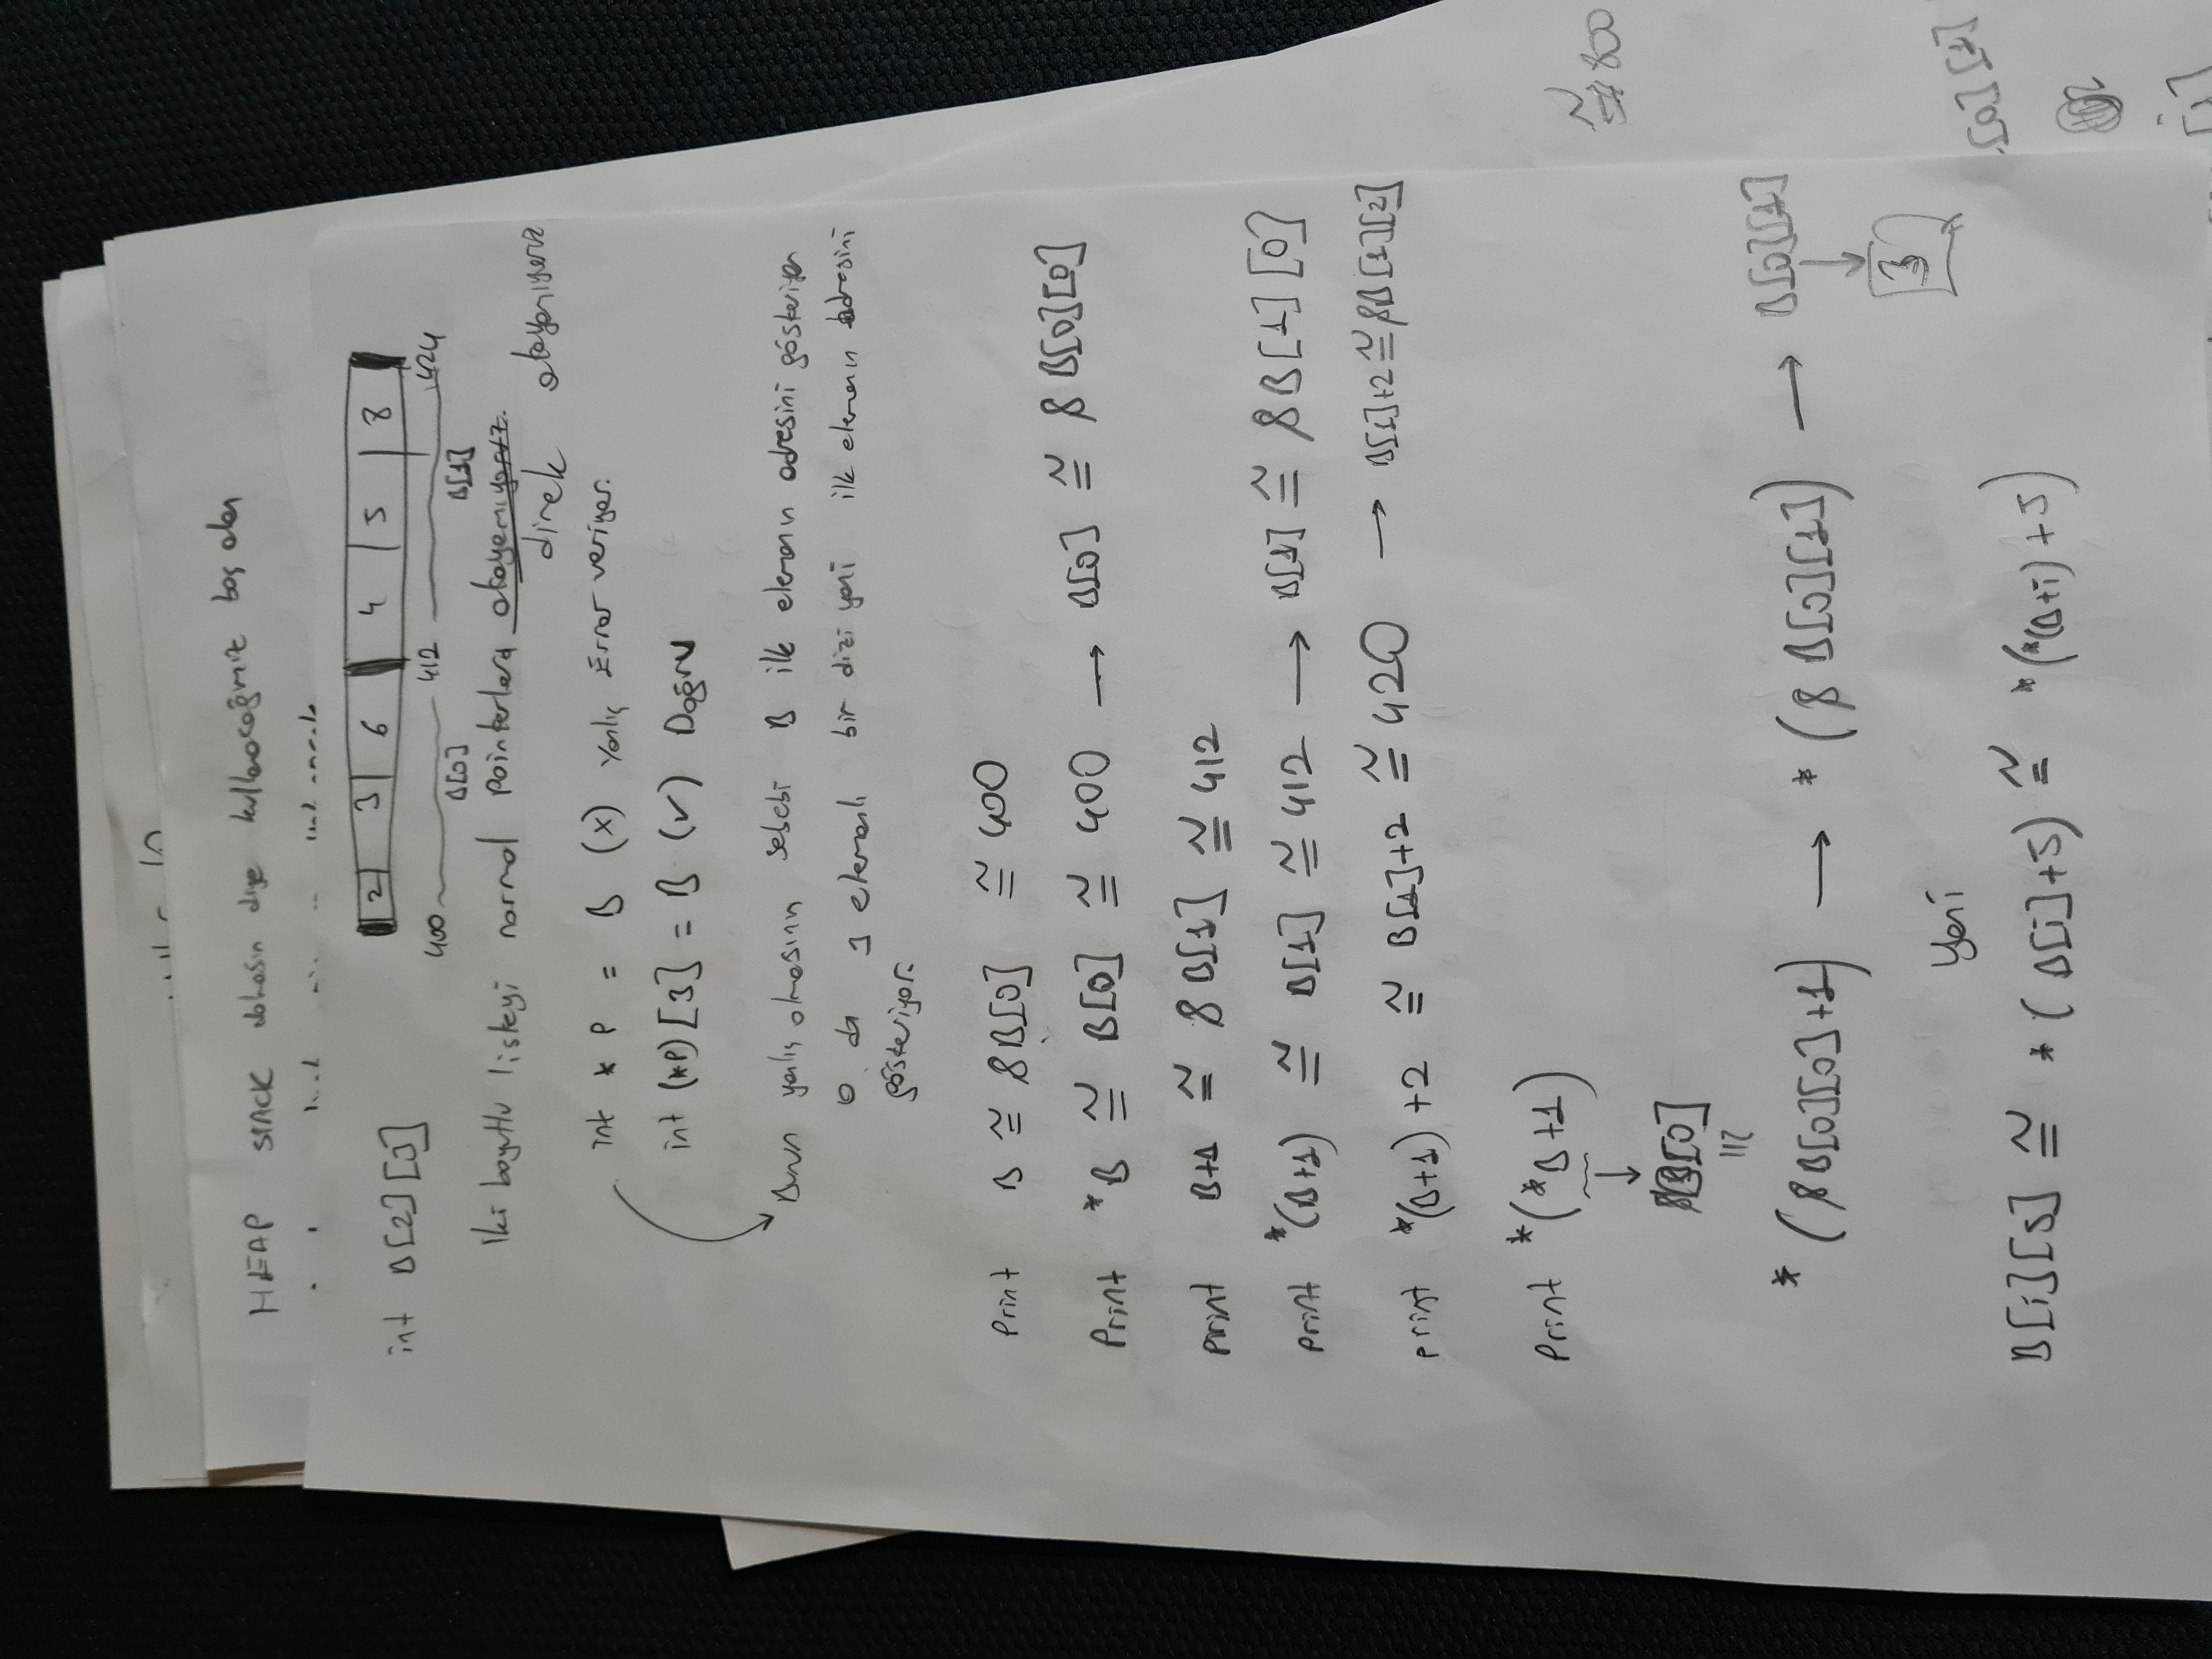 HEAP STACK dolmasın diye kullanacağımız boş alan
int B[2][3]
2 3 6 4 5 8
400 412 424
B[0] B[1]
Iki boyutlu listeyi normal Pointerlara atayamıyoruz.
direk atayamıyoruz
int * P = B (x) Yanlış Error veriyor.
int (*P)[3] = B (✓) Doğru
Bunun yanlış olmasının sebebi B ilk elemanın adresini gösteriyor
o da 3 elemanlı bir dizi yani ilk elemanın adresini
gösteriyor.
Print B ≅ &B[0] ≅ 400
Print *B ≅ B[0] ≅ 400 → B[0] ≅ &B[0][0]
print B+1 ≅ &B[1] ≅ 412
print *(B+1) ≅ B[1] ≅ 412 → B[1] ≅ &B[1][0]
print *(B+1)+2 ≅ B[1]+2 ≅ 420 → B[1]+2 ≅ &B[1][2]
Print *(*B+1)
↓
B[0]
≅
≅ 800
*(&B[0][0]+1) → *(&B[0][1]) → B[0][1]
↓
3
Yani
[0][1]
B[i][J] ≅ *(B[i]+J) ≅ *(*(B+i)+J)